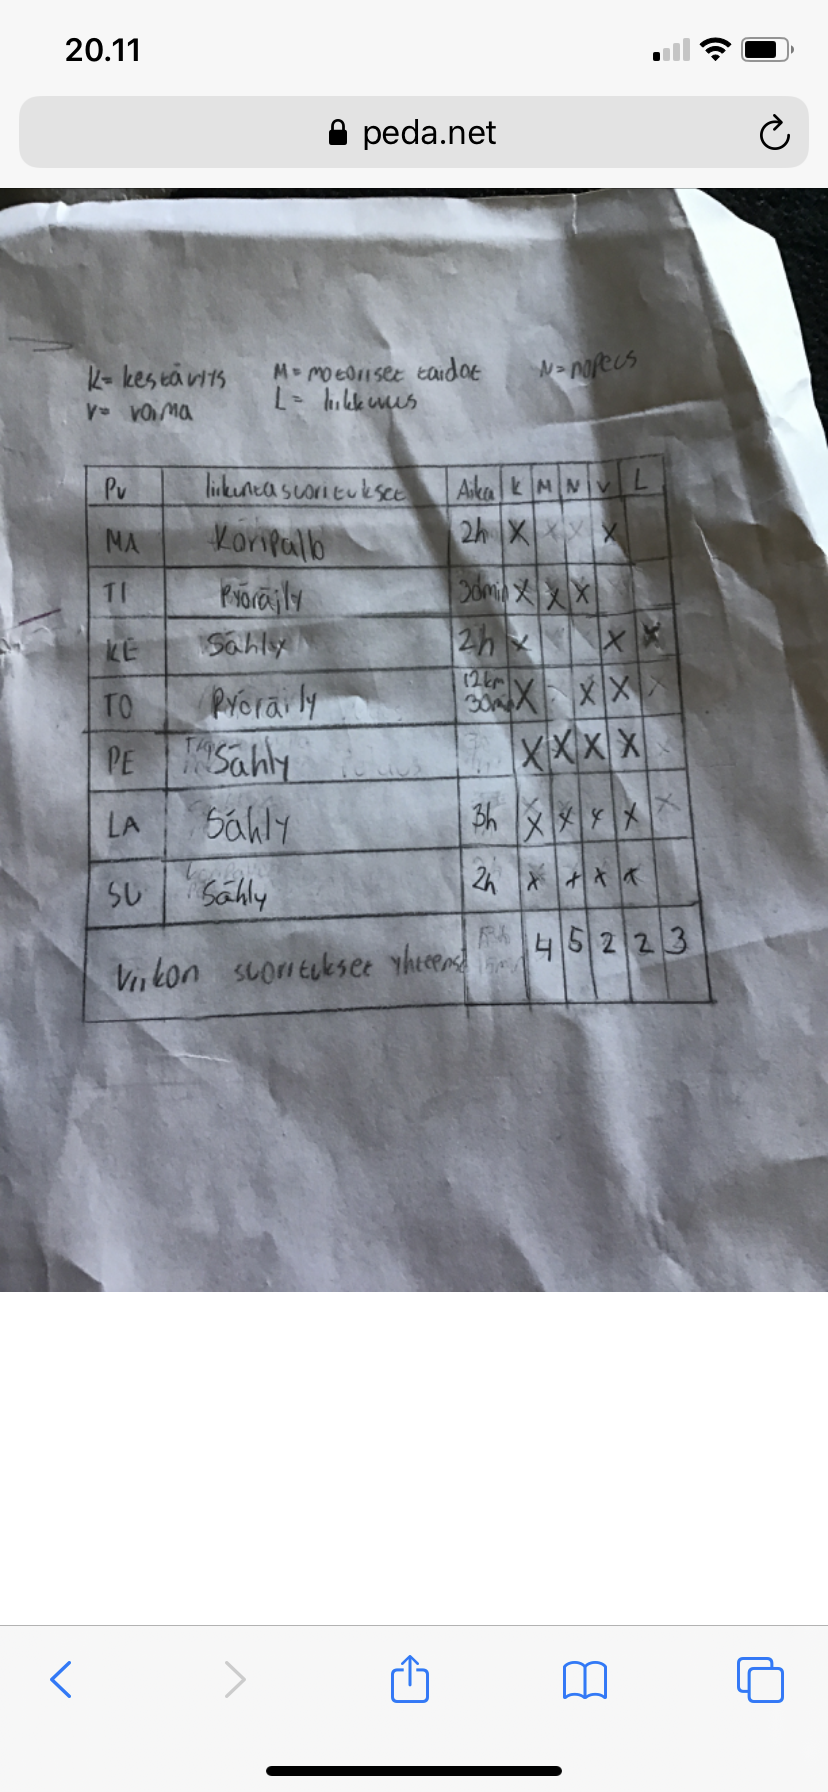 20.11
peda.net
K= kestävyys M= motoriset taidot N=nopeus
V= voima L= liikkuvus
Pv liikuntasuoritukset Aika K M N V L
MA Koripallo 2h X X X X
TI Pyöräily 30min X X X
KE Sähly 2h X X X
TO Pyöräily 12km 30min X X X X
PE Sähly X X X X
LA Sähly 3h X X X X X
SU Sähly 2h X X X X
Viikon suoritukset yhteensä 4 5 2 2 3